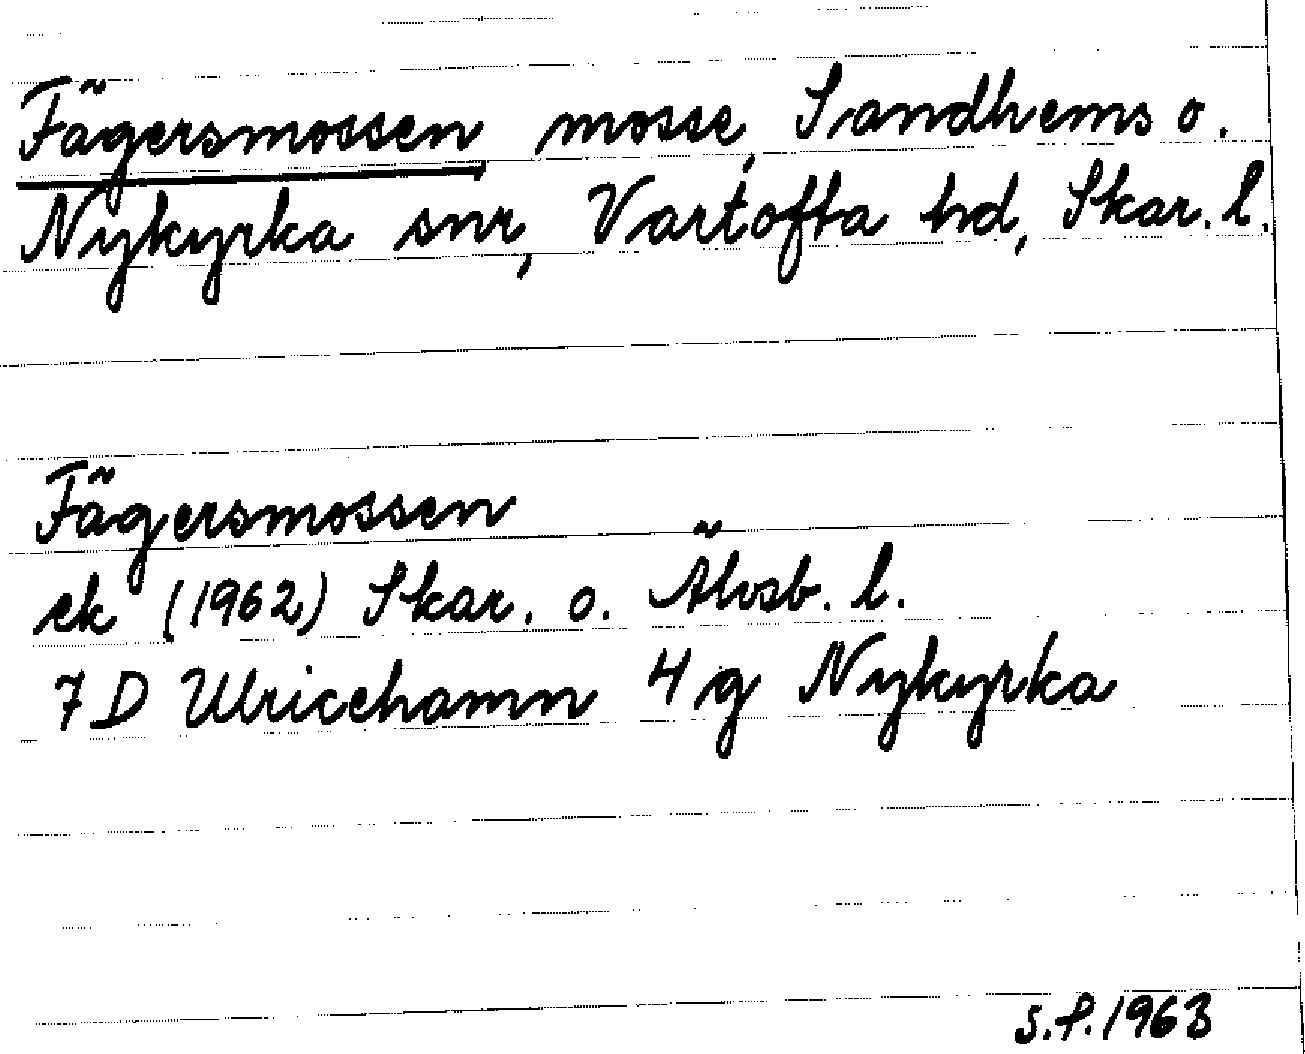 Fägersmossen, mosse, Sandhems o.
Nykyrka snr, Vartofta hd, Skar. l.
Fägersmossen
ek (1962) Skar. o. Älvsb. l.
7 D Ulricehamn 4 g Nykyrka
S.P. 1963